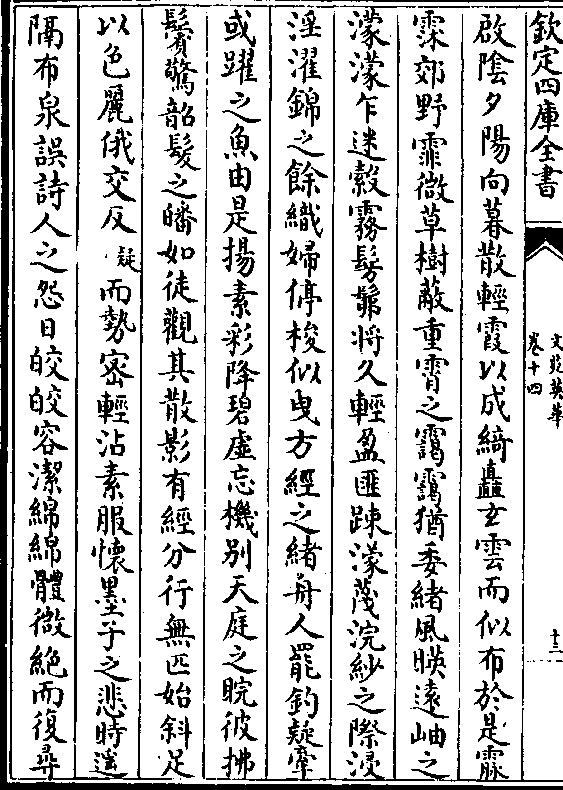 欽定四庫全書
文苑英華
卷十四
十三
啟陰夕陽向暮散輕霞以成綺矗玄雲而似布於是霢
霂郊野霏微草樹蔽重霄之靄靄猶委緒風暎遠岫之
濛濛乍迷縠霧髣髴將久輕盈匪踈濛蔑浣紗之際浸
淫濯錦之餘織婦停梭似曳方經之緒舟人罷釣疑牽
或躍之魚由是揚素彩降碧虛忘機别天庭之晥彼拂
鬢驚韶髮之皤如徒觀其散影有經分行無匹始斜足
以色麗俄交反疑而勢密輕沾素服懷墨子之悲時遥
隔布泉誤詩人之怨日皎皎容潔綿綿體微絶而復尋